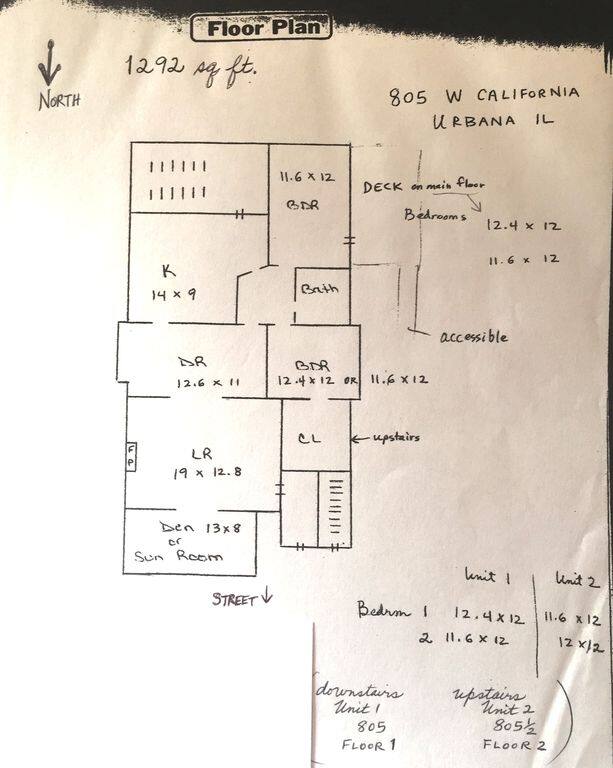 Floor Plan
NORTH
1292 sq ft.
805 W CALIFORNIA
URBANA IL
11.6 x 12
BDR
DECK on main floor
Bedrooms
12.4 x 12
11.6 x 12
K
14 x 9
Bath
accessible
DR
12.6 x 11
BDR
12.4 x 12 OR 11.6 x 12
CL
upstairs
FP
LR
19 x 12.8
Den 13x8
or
Sun Room
STREET
Unit 1 Unit 2
Bedrm 1 12.4 x 12 11.6 x 12
2 11.6 x 12 12 x 12
downstairs upstairs
Unit 1 Unit 2
805 805 1/2
FLOOR 1 FLOOR 2